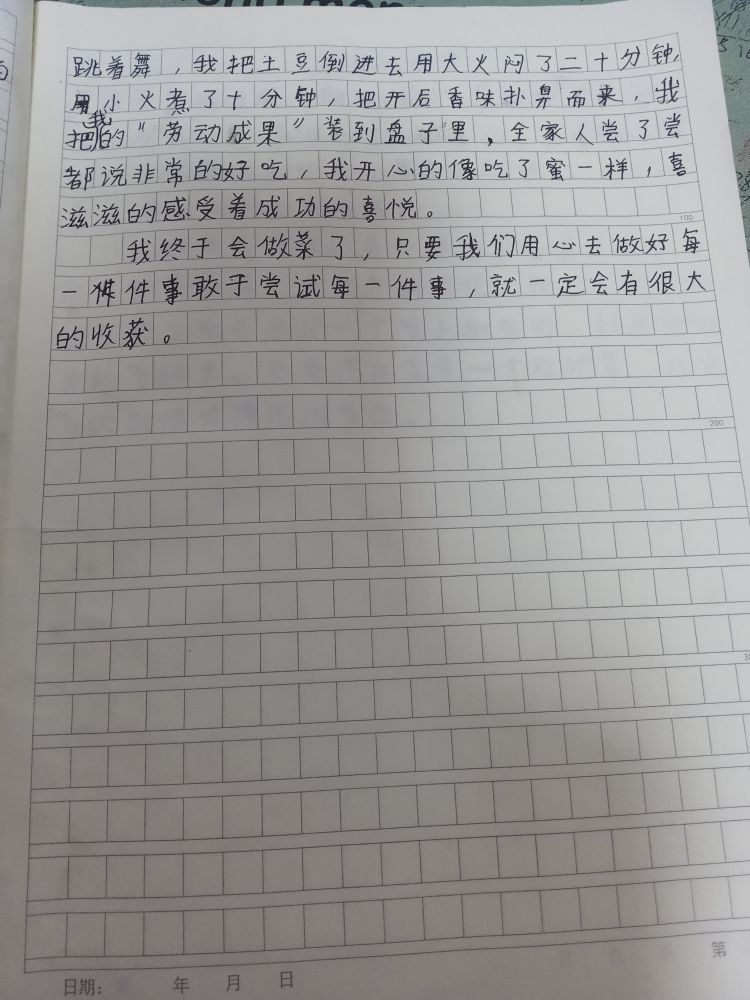 跳着舞，我把土豆倒进去用大火闷了二十分钟，
用小火煮了十分钟，把开后香味扑鼻而来，我
把我的“劳动成果”装到盘子里，全家人尝了尝
都说非常的好吃，我开心的像吃了蜜一样，喜
滋滋的感受着成功的喜悦。
100
我终于会做菜了，只要我们用心去做好每
一件事敢于尝试每一件事，就一定会有很大
的收获。
200
日期： 年 月 日
第